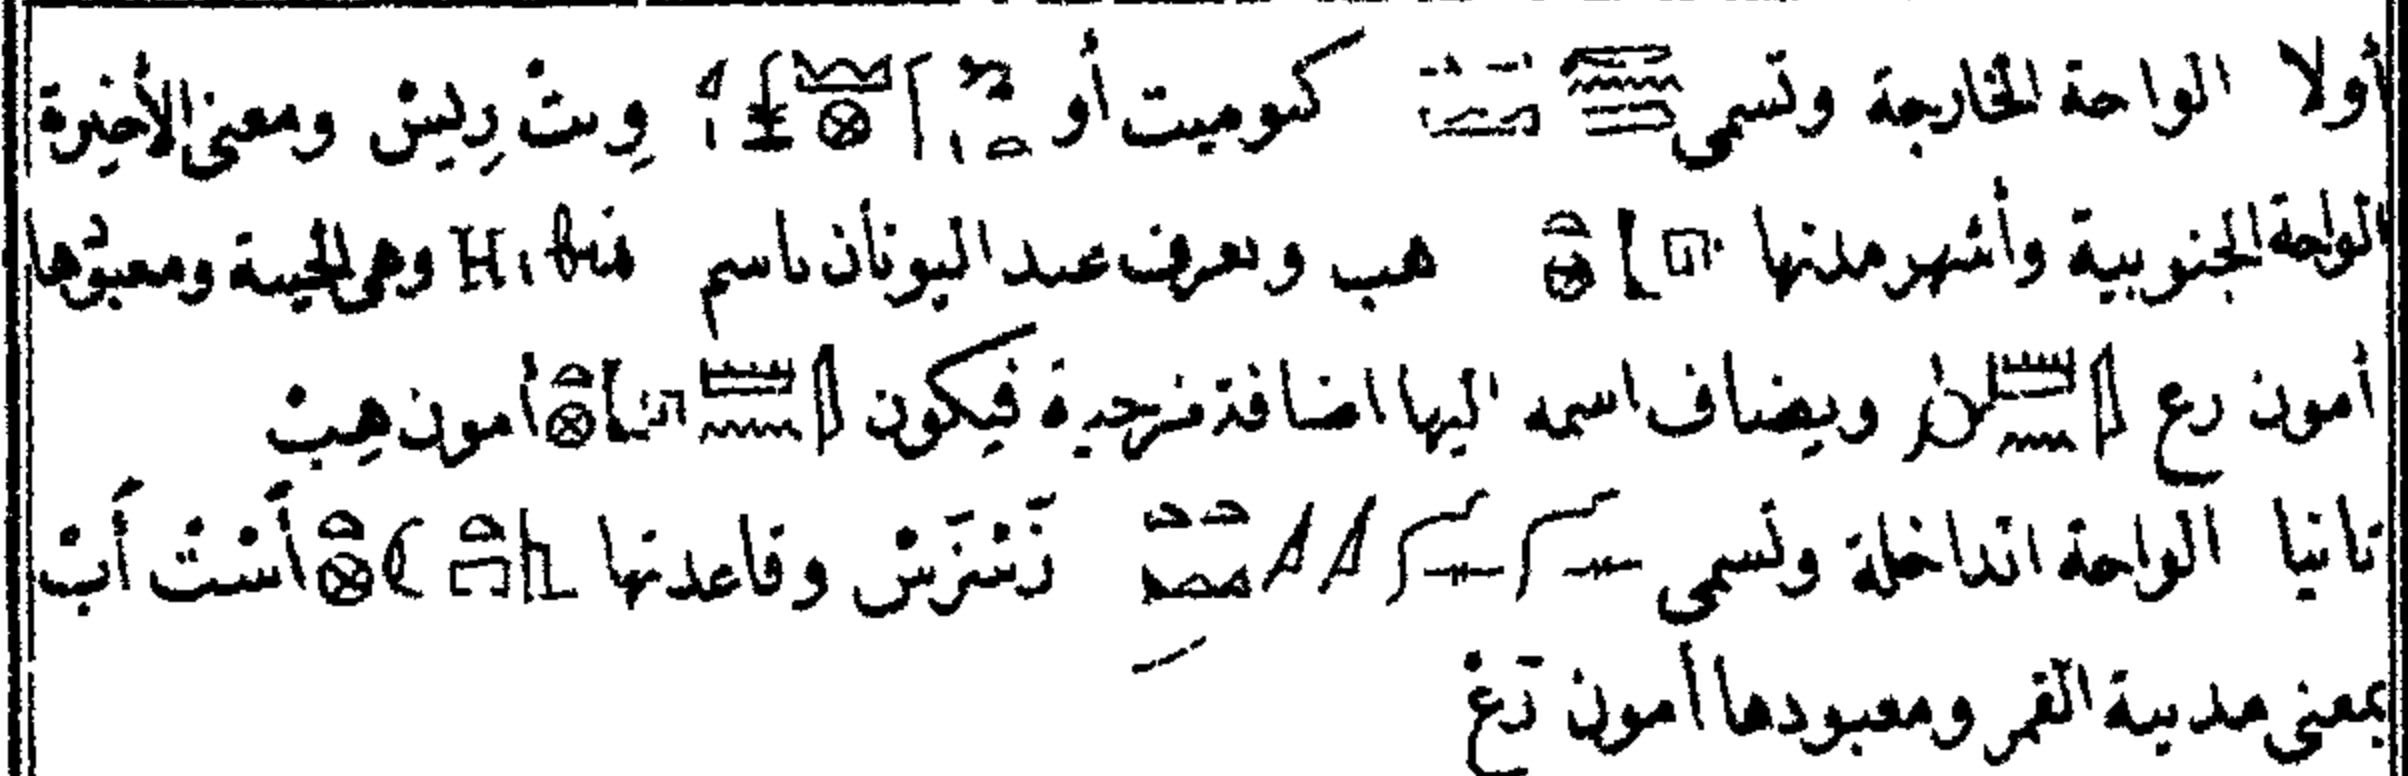 أولا الواحة الخارجة وتسمى كنوميت أو وِتْ رِيسْ ومعنى الأخيرة
الواحة الجنوبية وأشهر مدنها هب وتعرف عند اليونان باسم هيبيس Hibis وهى الهيبة ومعبودها
أمون رع ويضاف اسمه اليها اضافة مزجية فيكون أمون هِبْ
ثانيا الواحة الداخلة وتسمى وقاعدتها أَسْتْ أَبْ
بمعنى مدينة القمر ومعبودها أمون رَعْ